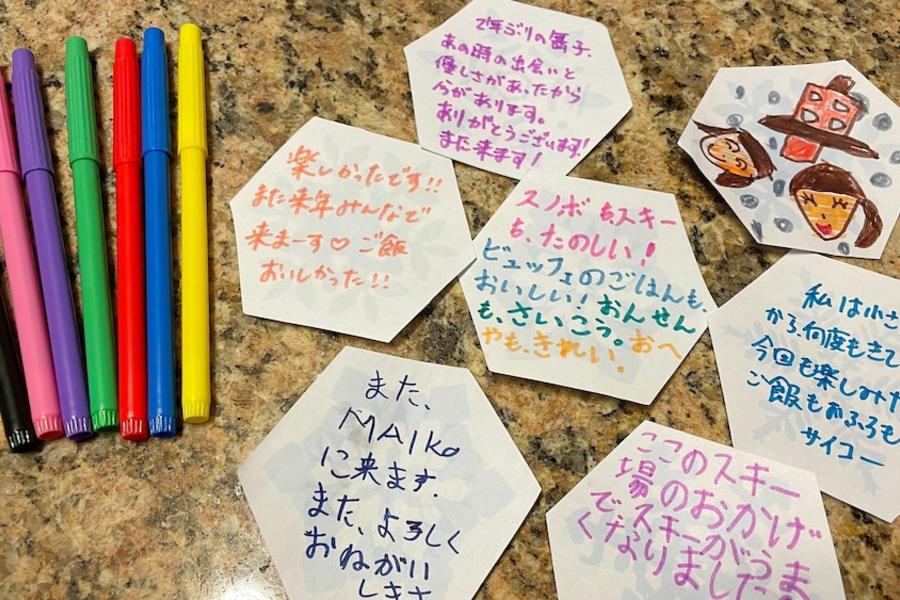 2年ぶりの苗子。
あの時の出会いと
優しさがあったから
今があります。
ありがとうございます!
また来ます!
楽しかったです!!
また来年みんなで
来まーす♡ ご飯
おいしかった!!
スノボもスキー
も、たのしい!
ビュッフェのごはんも、
おいしい! おんせん
も、さいこう。 おへ
やも、きれい。
私は小さ
から、何度もきて
今回も楽しみ
ご飯もおふろも
サイコー
また、
MAIKo
に来ます。
また、よろしく
おねがい
します
ここのスキー
場のおかげ
で、スキーがうま
くなりました